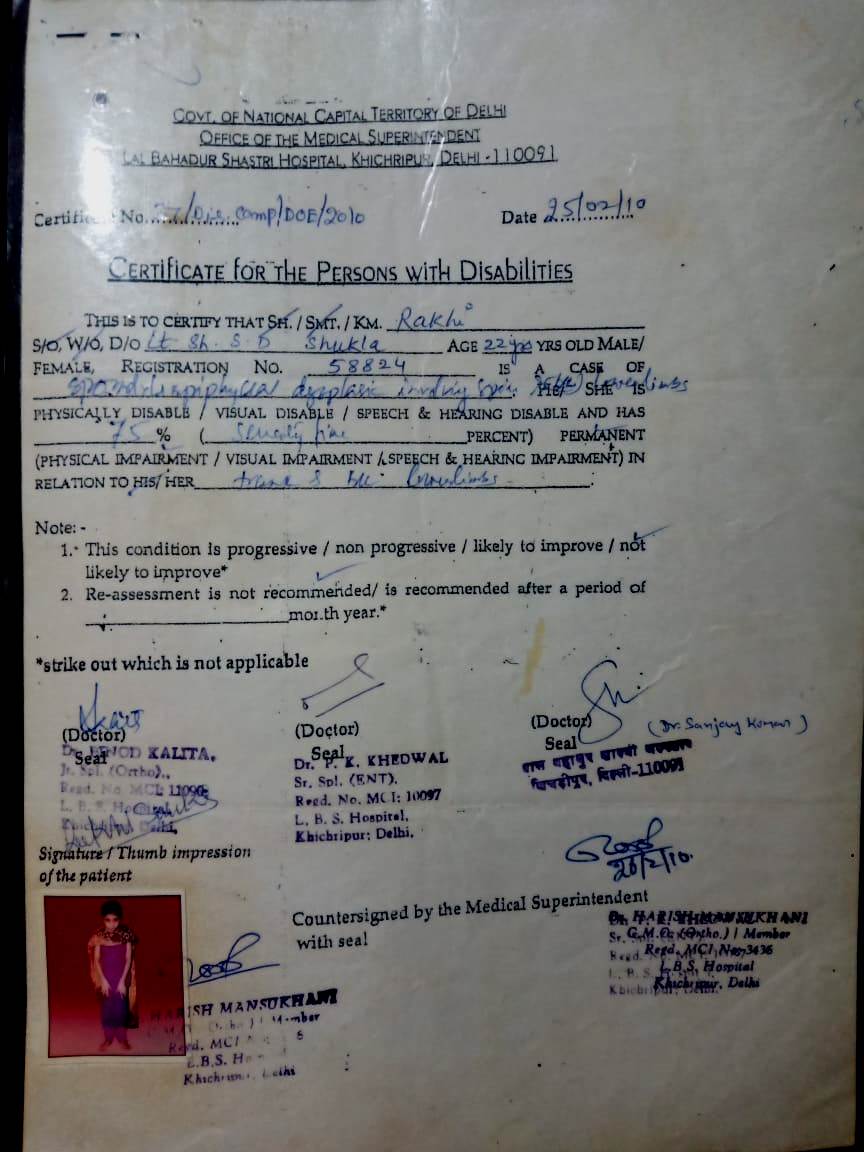 GOVT. OF NATIONAL CAPITAL TERRITORY OF DELHI
OFFICE OF THE MEDICAL SUPERINTENDENT
LAL BAHADUR SHASTRI HOSPITAL, KHICHRIPUR, DELHI -110091
Certificate No. /Dis Camp/DOE/2010 Date 25/02/10
CERTIFICATE FOR THE PERSONS WITH DISABILITIES
THIS IS TO CERTIFY THAT SH. / SMT. / KM. Rakhi
S/O, W/O, D/O Lt Sh. S D Shukla AGE 22 yrs YRS OLD MALE/
FEMALE, REGISTRATION NO. 58824 IS A CASE OF
dysplasia involving spine HE/ SHE IS
PHYSICALLY DISABLE / VISUAL DISABLE / SPEECH & HEARING DISABLE AND HAS
75 % ( Seventy five PERCENT) PERMANENT
(PHYSICAL IMPAIRMENT / VISUAL IMPAIRMENT / SPEECH & HEARING IMPAIRMENT) IN
RELATION TO HIS/ HER
Note: -
1. This condition is progressive / non progressive / likely to improve / not
likely to improve*
2. Re-assessment is not recommended/ is recommended after a period of
month year.*
*strike out which is not applicable
(Doctor) (Doctor) (Doctor) (Dr. Sanjay Kumar)
Seal Seal Seal
KALITA,
Jr. Spl. (Ortho).,
Regd. No MCI:
L. B. S. Hospital,
Delhi,
Dr. P. K. KHEDWAL
Sr. Spl. (ENT),
Regd. No. MCI: 10097
L. B. S. Hospital,
Khichripur: Delhi,
लाल बहादुर शास्त्री
खिचड़ीपुर, दिल्ली-110091
Signature / Thumb impression
of the patient
26/2/10.
Countersigned by the Medical Superintendent
with seal
Dr. HARISH MANSUKHANI
G.M.O. (Ortho.) | Member
Regd. MCI
L.B.S. Hospital
Khichripur, Delhi
HARISH MANSUKHANI
Member
Regd. MCI
L.B.S.